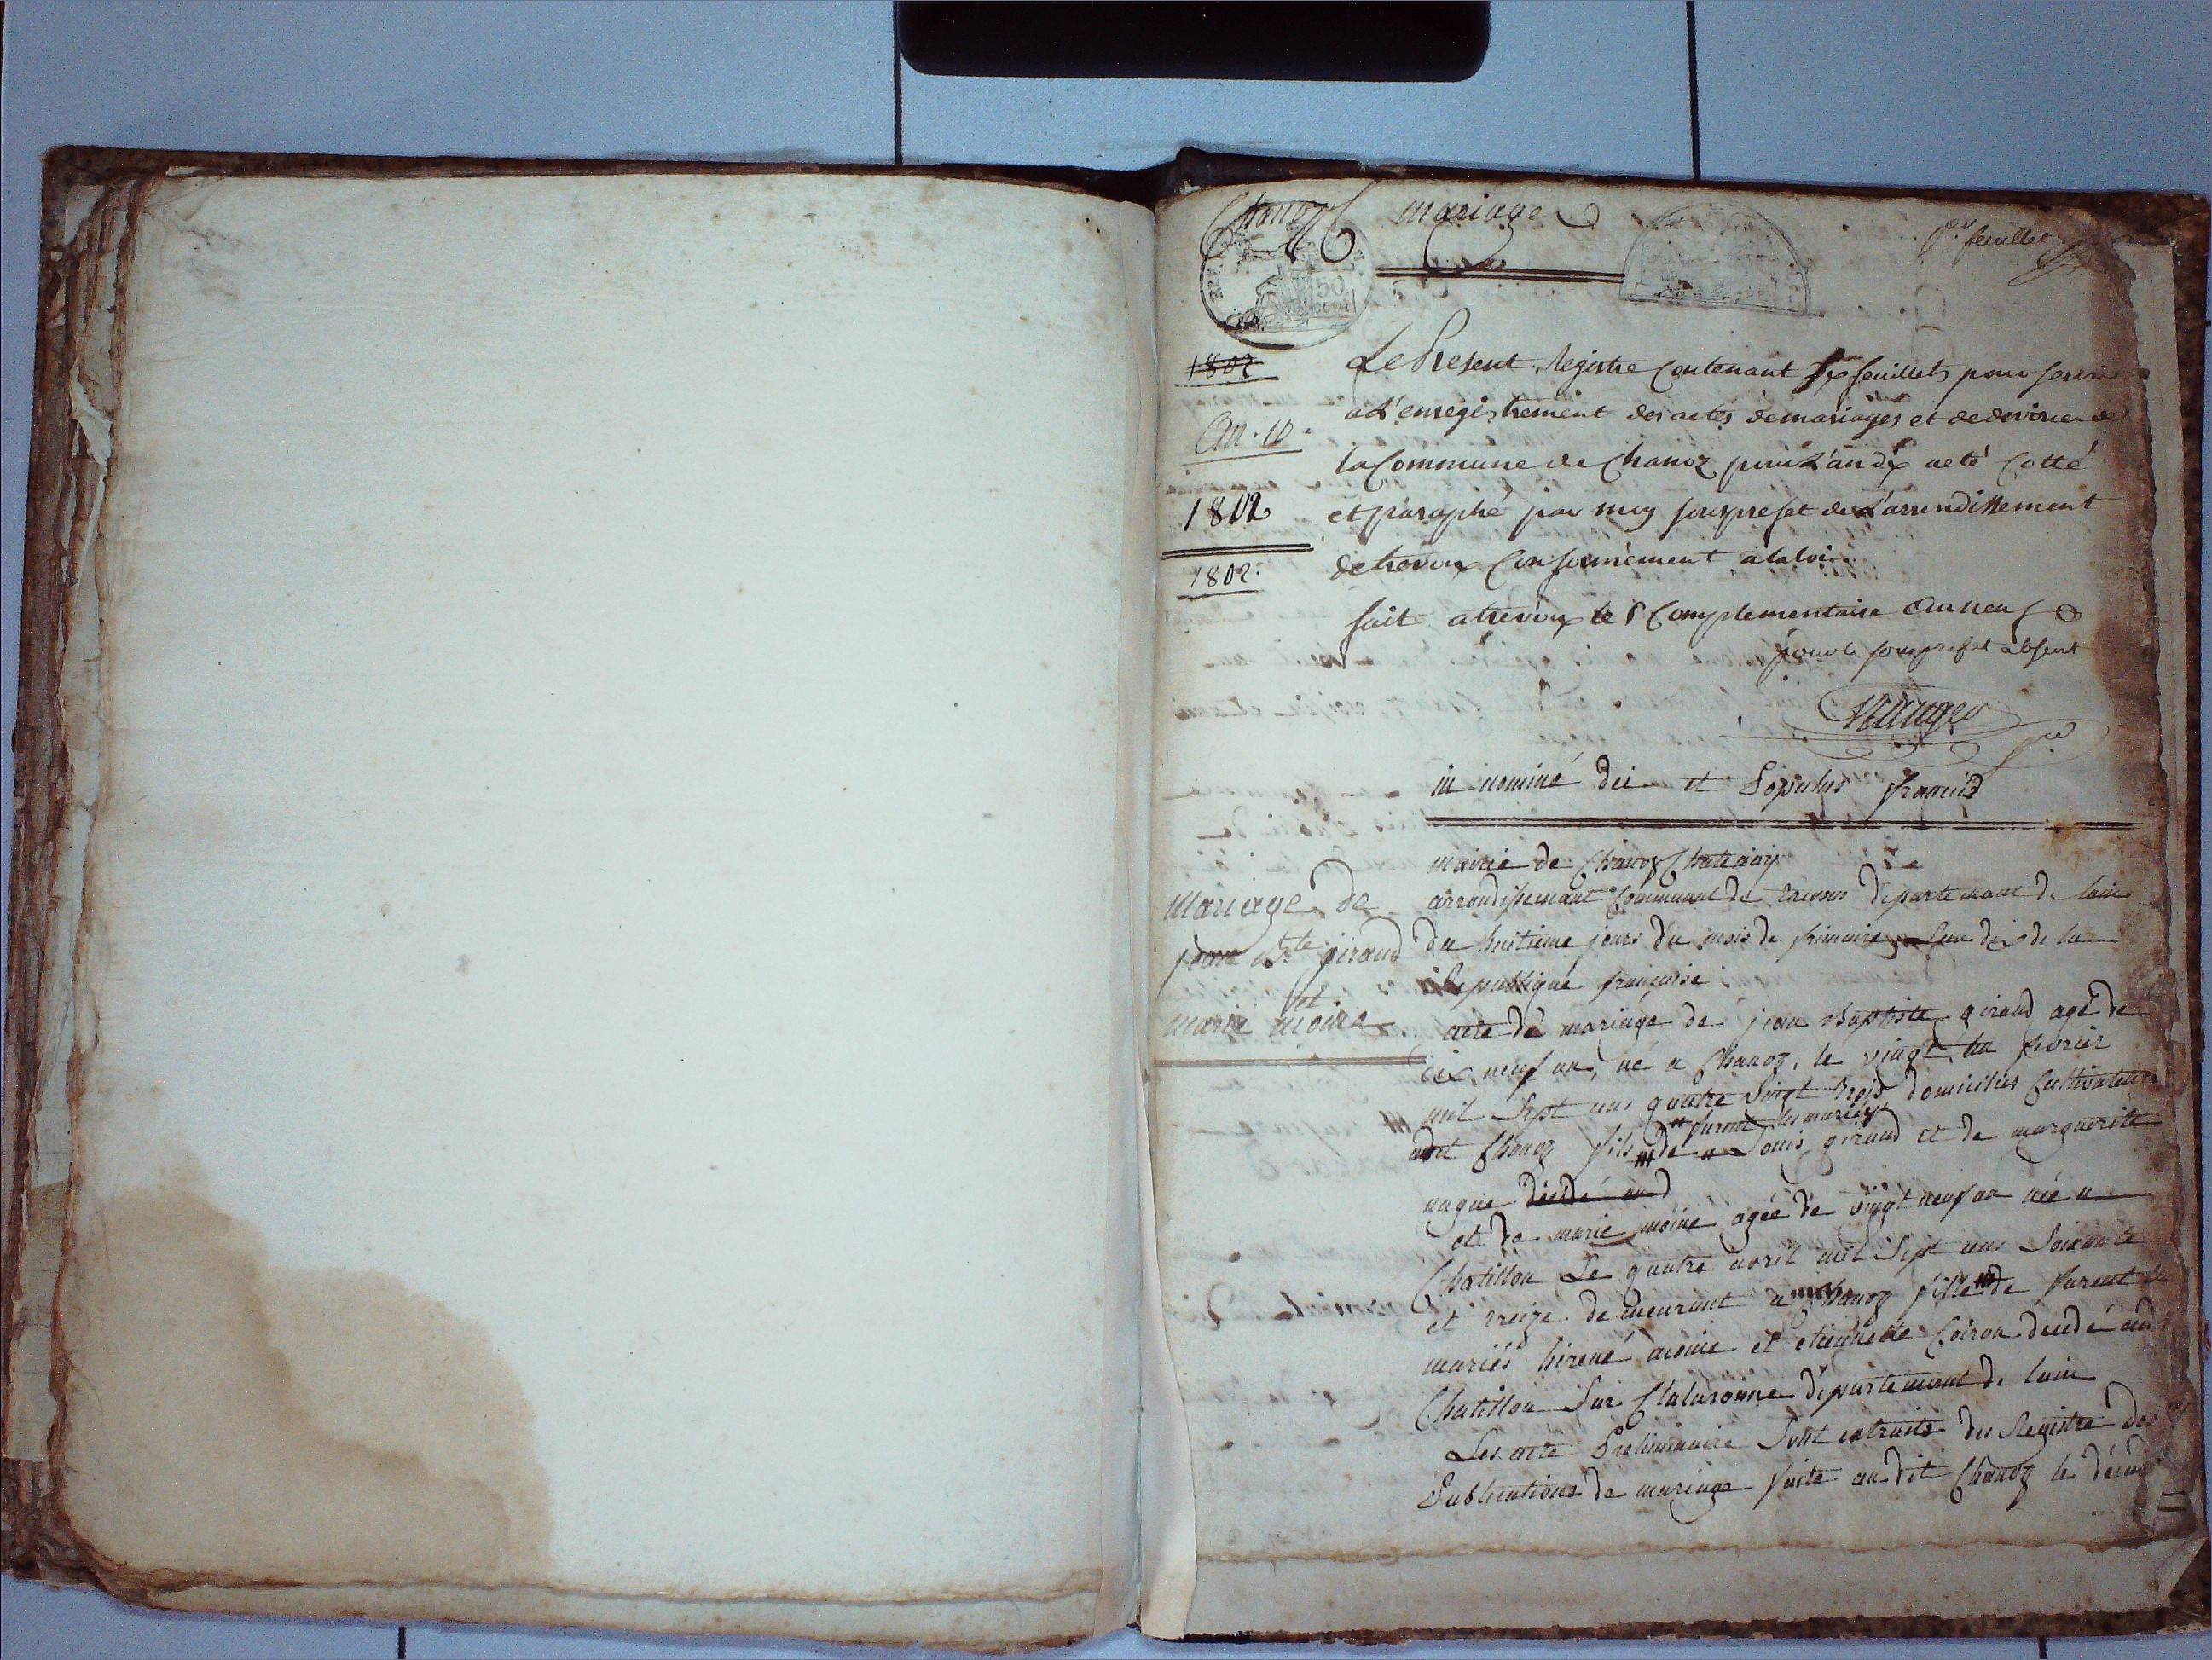 Chanoz mariage
pr. feuillet
50
cent
1802
An. 10.
1802
1802.
Le Present Registre Contenant six feuillets pour servir
a L'enregistrement des actes de mariages et de divorces de
la Commune de Chanoz pour L'an dix a eté Cotté
et paraphé par moy sousprefet de L'arrondissement
de trevoux Conformement a la loi
fait a trevoux le 5 Complementaire An neuf
pour le sousprefet absent
in nominé dei et Populus francid
mairie de Chanoz Chatenay
arrondissemant Communal de trevoux departemant de lain
Mariage de
jean Bte giraud
et
marie moine
du huitieme jours du mois de frimaire Lan dix de la
Republique françoise
acte de mariage de jean Baptiste giraud agé de
dix neuf an, né a Chanoz, le vingt un fevrier
mil Sept cens quatre vingt trois domicilies Cultivateur
" furent les mariés
audit Chanoz fils de " Louis giraud et de marguerite
nague décedé and
et de marie moine agée de vingt neuf an née a
Chatillon Le quatre avril mil Sept cens Soixante
et treize demeurant a Chanoz fille de furent les
mariés hirené moine et etiennette Coiron decedé aud
Chatillon Sur Chalaronne departemant de lain
Les acte Preliminaire Sont extraits du Registre des
Publications de mariage faite au dit Chanoz le